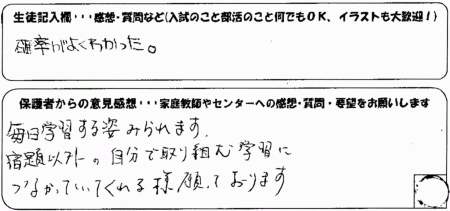 生徒記入欄・・・感想・質問など(入試のこと部活のこと何でもOK、イラストも大歓迎！)
確率がよくわかった。
保護者からの意見感想・・・家庭教師やセンターへの感想・質問・要望をお願いします
毎日学習する姿みられます.
宿題以外の自分で取り組む学習に
つながっていてくれる様願っております